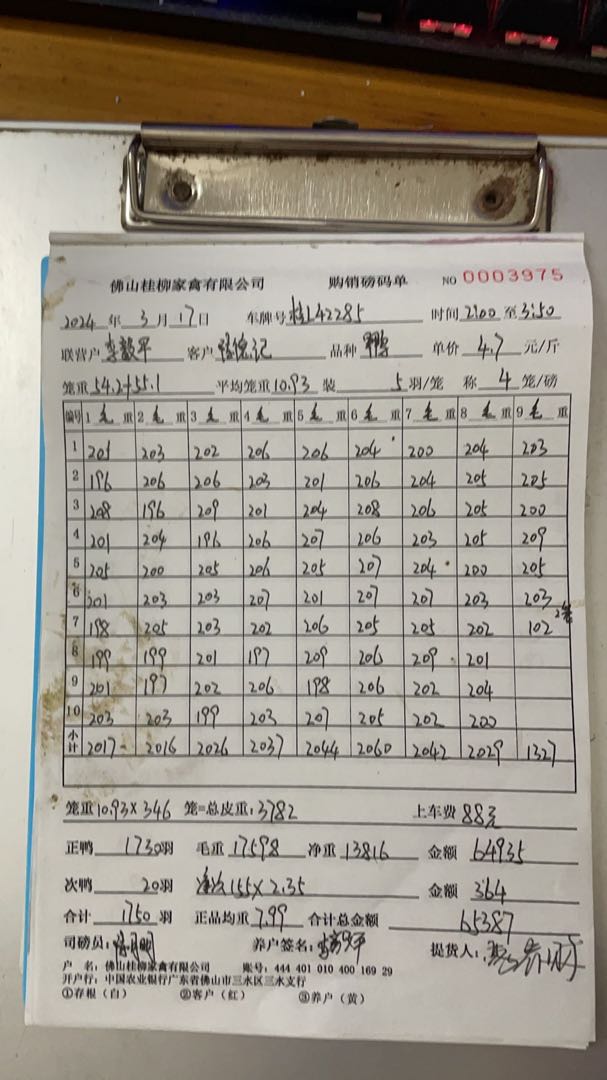 佛山桂柳家禽有限公司 购销磅码单 NO 0003975
2024 年 3 月 17 日 车牌号 桂L42285 时间 2:00 至 3:50
联营户 李毅平 客户 记 品种 鸭 单价 4.7 元/斤
笼重 54.2+55.1 平均笼重 10.93 装 5 羽/笼 称 4 笼/磅
编号 1 毛 重 2 毛 重 3 毛 重 4 毛 重 5 毛 重 6 毛 重 7 毛 重 8 毛 重 9 毛 重
1 205 203 202 206 206 204 200 204 203
2 196 206 206 203 201 206 204 205 205
3 208 196 209 201 204 208 206 205 200
4 201 204 196 206 207 206 203 205 209
5 205 200 205 206 205 207 204 200 205
6 201 203 203 207 201 207 207 203 203
7 198 205 203 202 206 205 205 202 102 2笼
8 199 199 201 197 209 206 209 201
9 201 197 202 206 198 206 202 204
10 203 203 199 203 207 205 202 200
小计 2017 2016 2026 2037 2044 2060 2042 2029 1327
笼重 10.93×346 笼=总皮重: 3782 上车费 88元
正鸭 1730羽 毛重 17598 净重 13816 金额 64935
次鸭 20羽 155×2.35 金额 364
合计 1750 羽 正品均重 7.99 合计总金额 65387
司磅员: 养户签名: 李毅平 提货人:
户 名: 佛山桂柳家禽有限公司 账号: 444 401 010 400 169 29
开户行: 中国农业银行广东省佛山市三水区三水支行
①存根(白) ②客户(红) ③养户(黄)